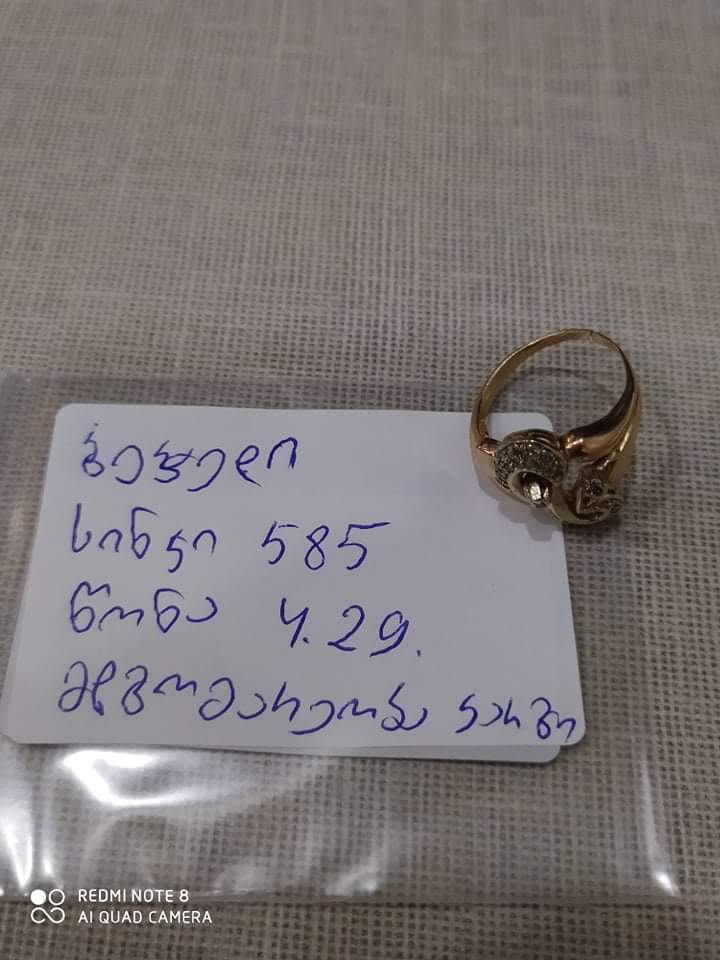 ბეჭედი
სინჯი 585
წონა 4.29.
მდგომარეობა კარგი
REDMI NOTE 8
AI QUAD CAMERA